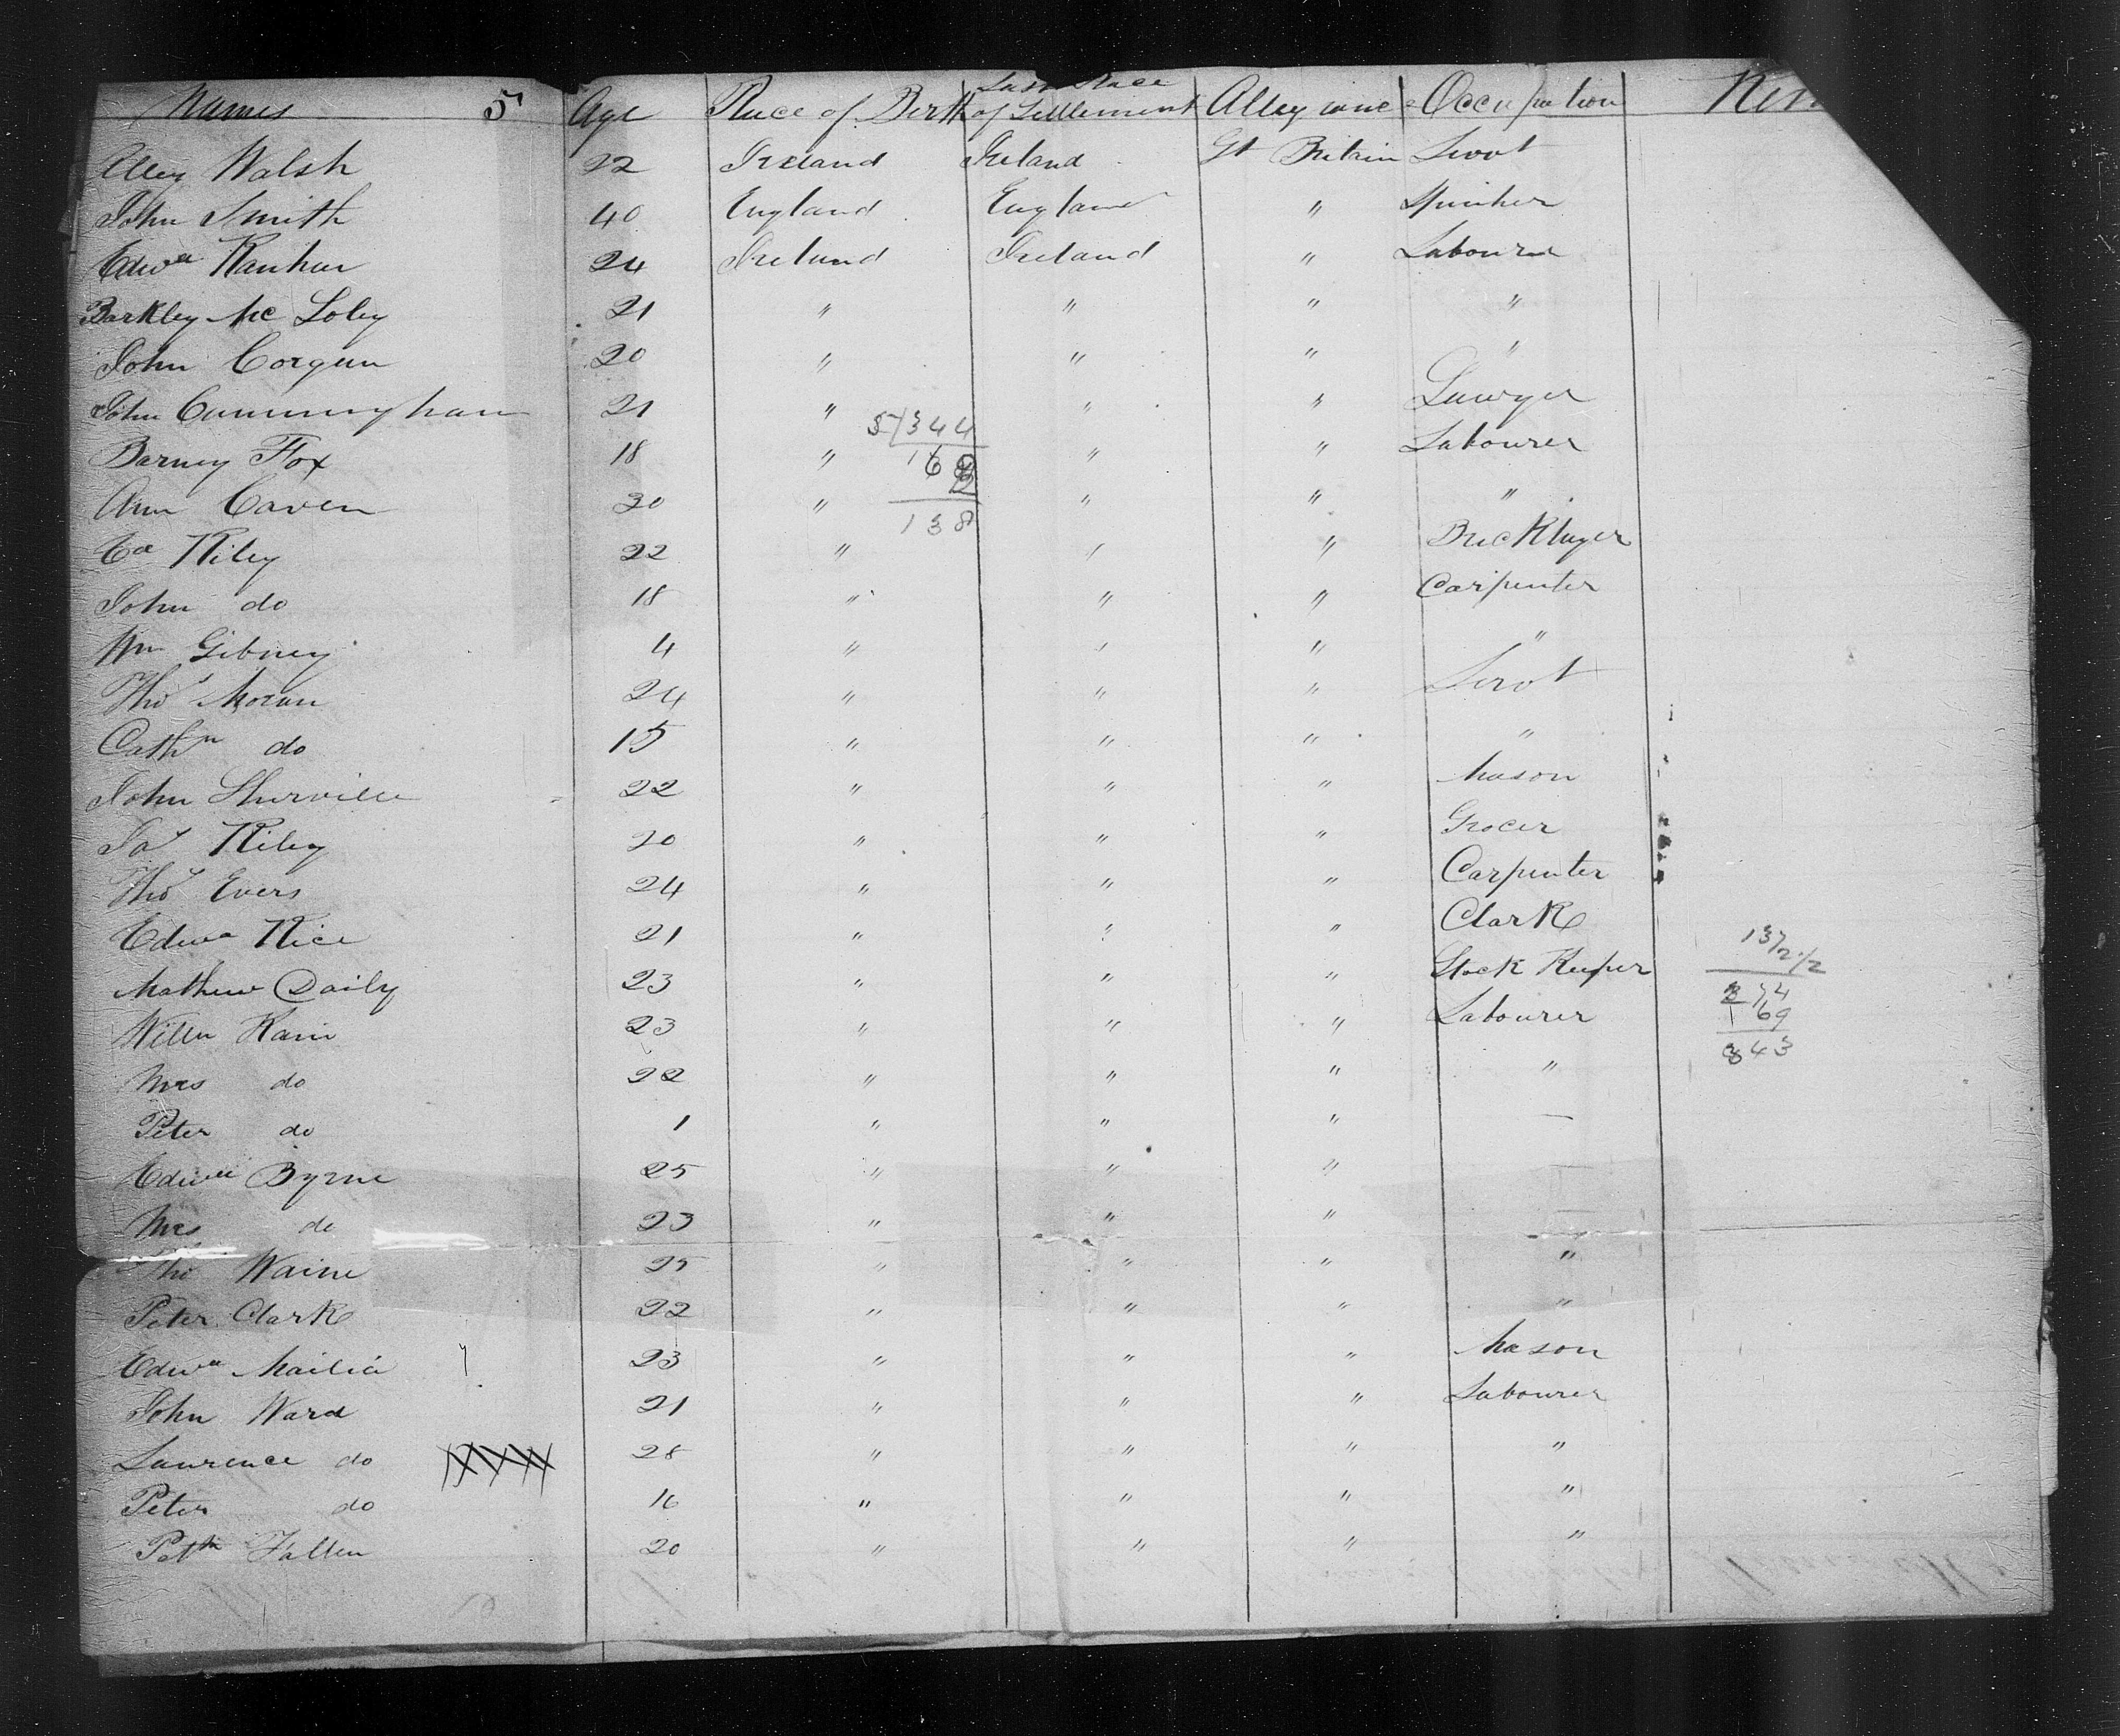 Names 5 Age Place of Birth Last Place of Settlement Allegiance Occupation
Alley Walsh 22 Ireland Ireland Gt Britain Servt
John Smith 40 England England " Spinher
Edwd 24 Ireland Ireland " Labourer
Barkley Mc Loley 21 " " " "
John Corgun 20 " " " "
John Cunningham 21 " " " Lawyer
5/344
Barney Fox 18 " " " Labourer
Ann Caven 30 " " " "
138
Ed Riley 22 " " " Bricklayer
John do 18 " " " Carpenter
Wm Gibney 4 " " " "
Thos Moran 24 " " " Servt
Cathn do 15 " " " "
John 22 " " " Mason
Jas Riley 20 " " " Grocer
Thos Evers 24 " " " Carpenter
Edwd Rice 21 " " " Clark
Mathew Daily 23 " " " Stock Keeper
137/2 1/2
274
169
343
Willm Kain 23 " " " Labourer
Mrs do 22 " " " "
Peter do 1 " " " —
Edwd Byrne 25 " " " —
Mrs do 23 " " " —
Tho Waine 25 " " " "
Peter Clark 22 " " " "
Edwd Mailia 23 " " " Mason
John Ward 21 " " " Labourer
Laurence do 28 " " " "
Peter do 16 " " " "
Patk Fallen 20 " " " "